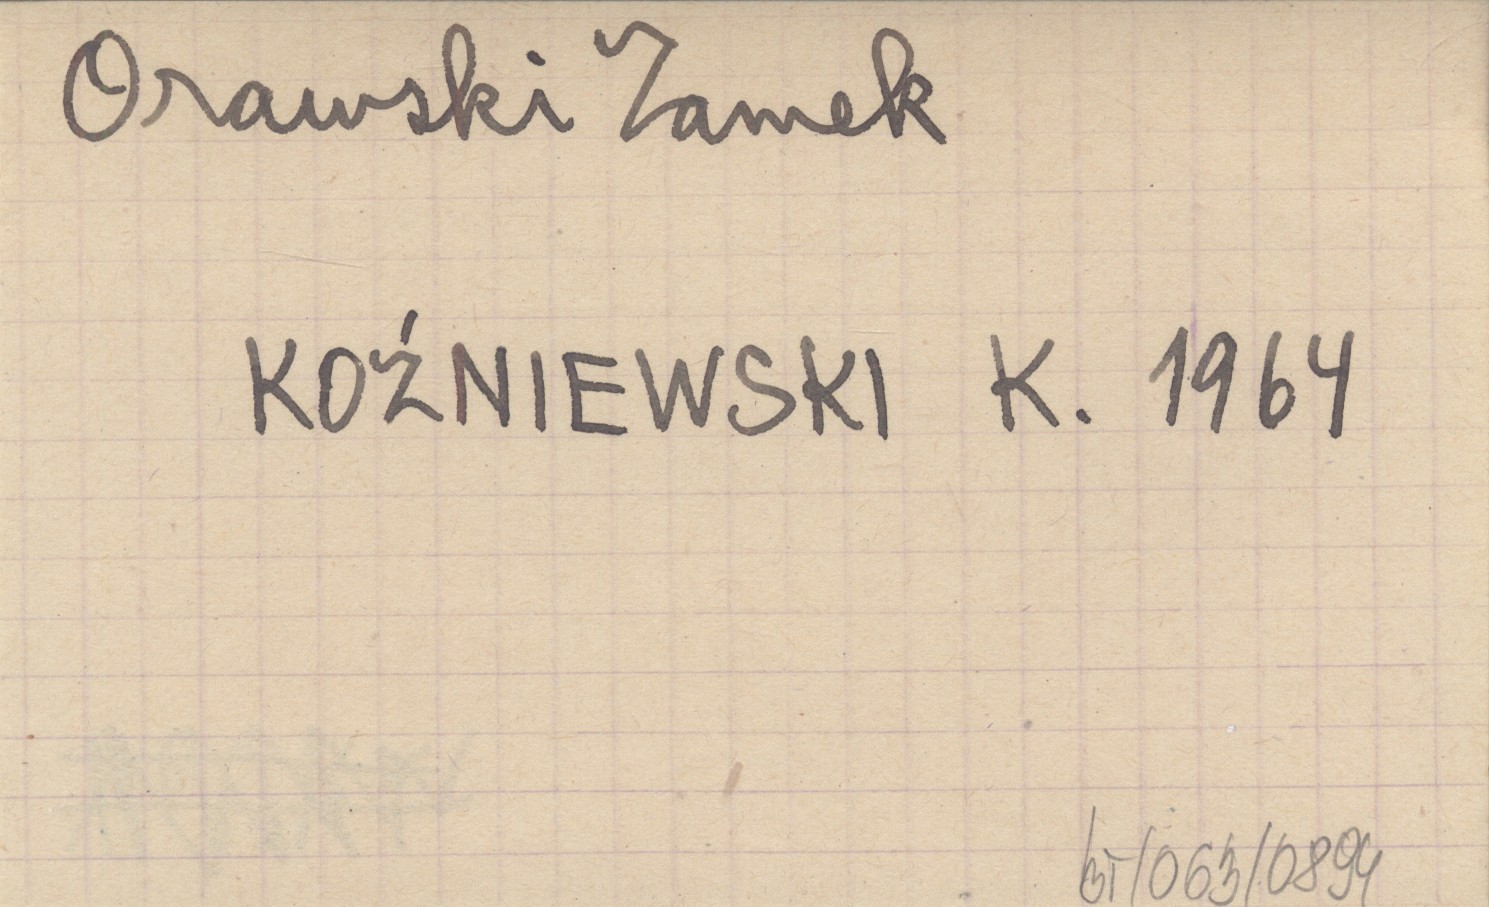 Orawski Zamek
KOŹNIEWSKI K. 1964
bT/063/0894